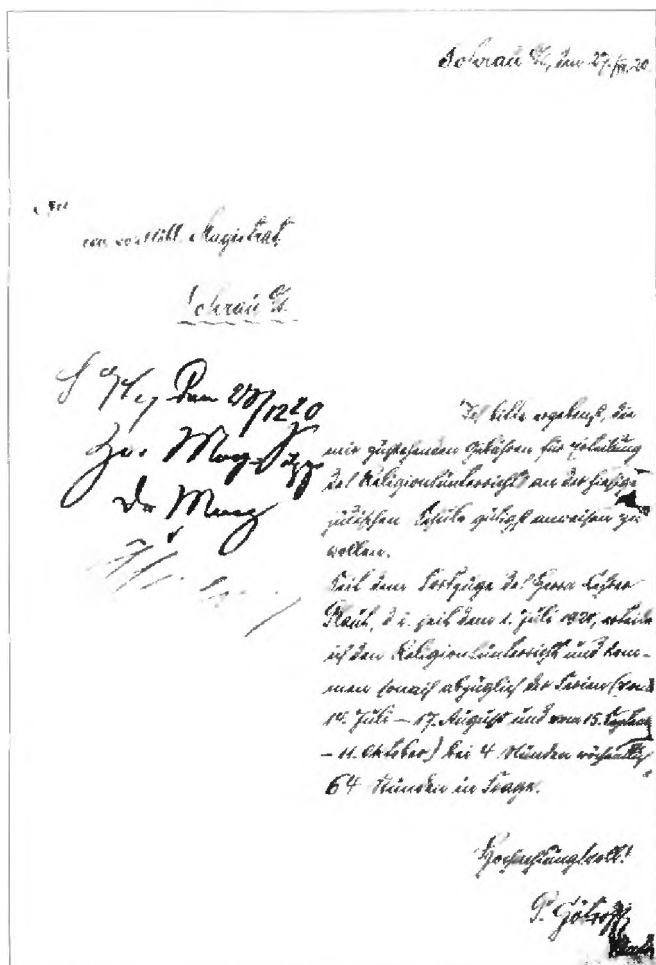 Sohrau O/S, den 27./12. 20.
wohllöbl. Magistrat
Sohrau O/S.
Den 28/12 20
Ich bitte ergebenst, die
mir zustehenden Gebühren für Erteilung
des Religionsunterrichts an der hiesigen
jüdischen Schule gütigst anweisen zu
wollen.
Seit dem Fortzuge des Herrn Lehrer
d. i. seit dem 1. Juli 1920, erteile
ich den Religionsunterricht und kom-
men sonach abzüglich der Ferien (vom
14. Juli – 17. August und vom 15. Septemb
– 11. Oktober) bei 4 Stunden wöchentlich
64 Stunden in Frage.
Hochachtungsvoll!
P.